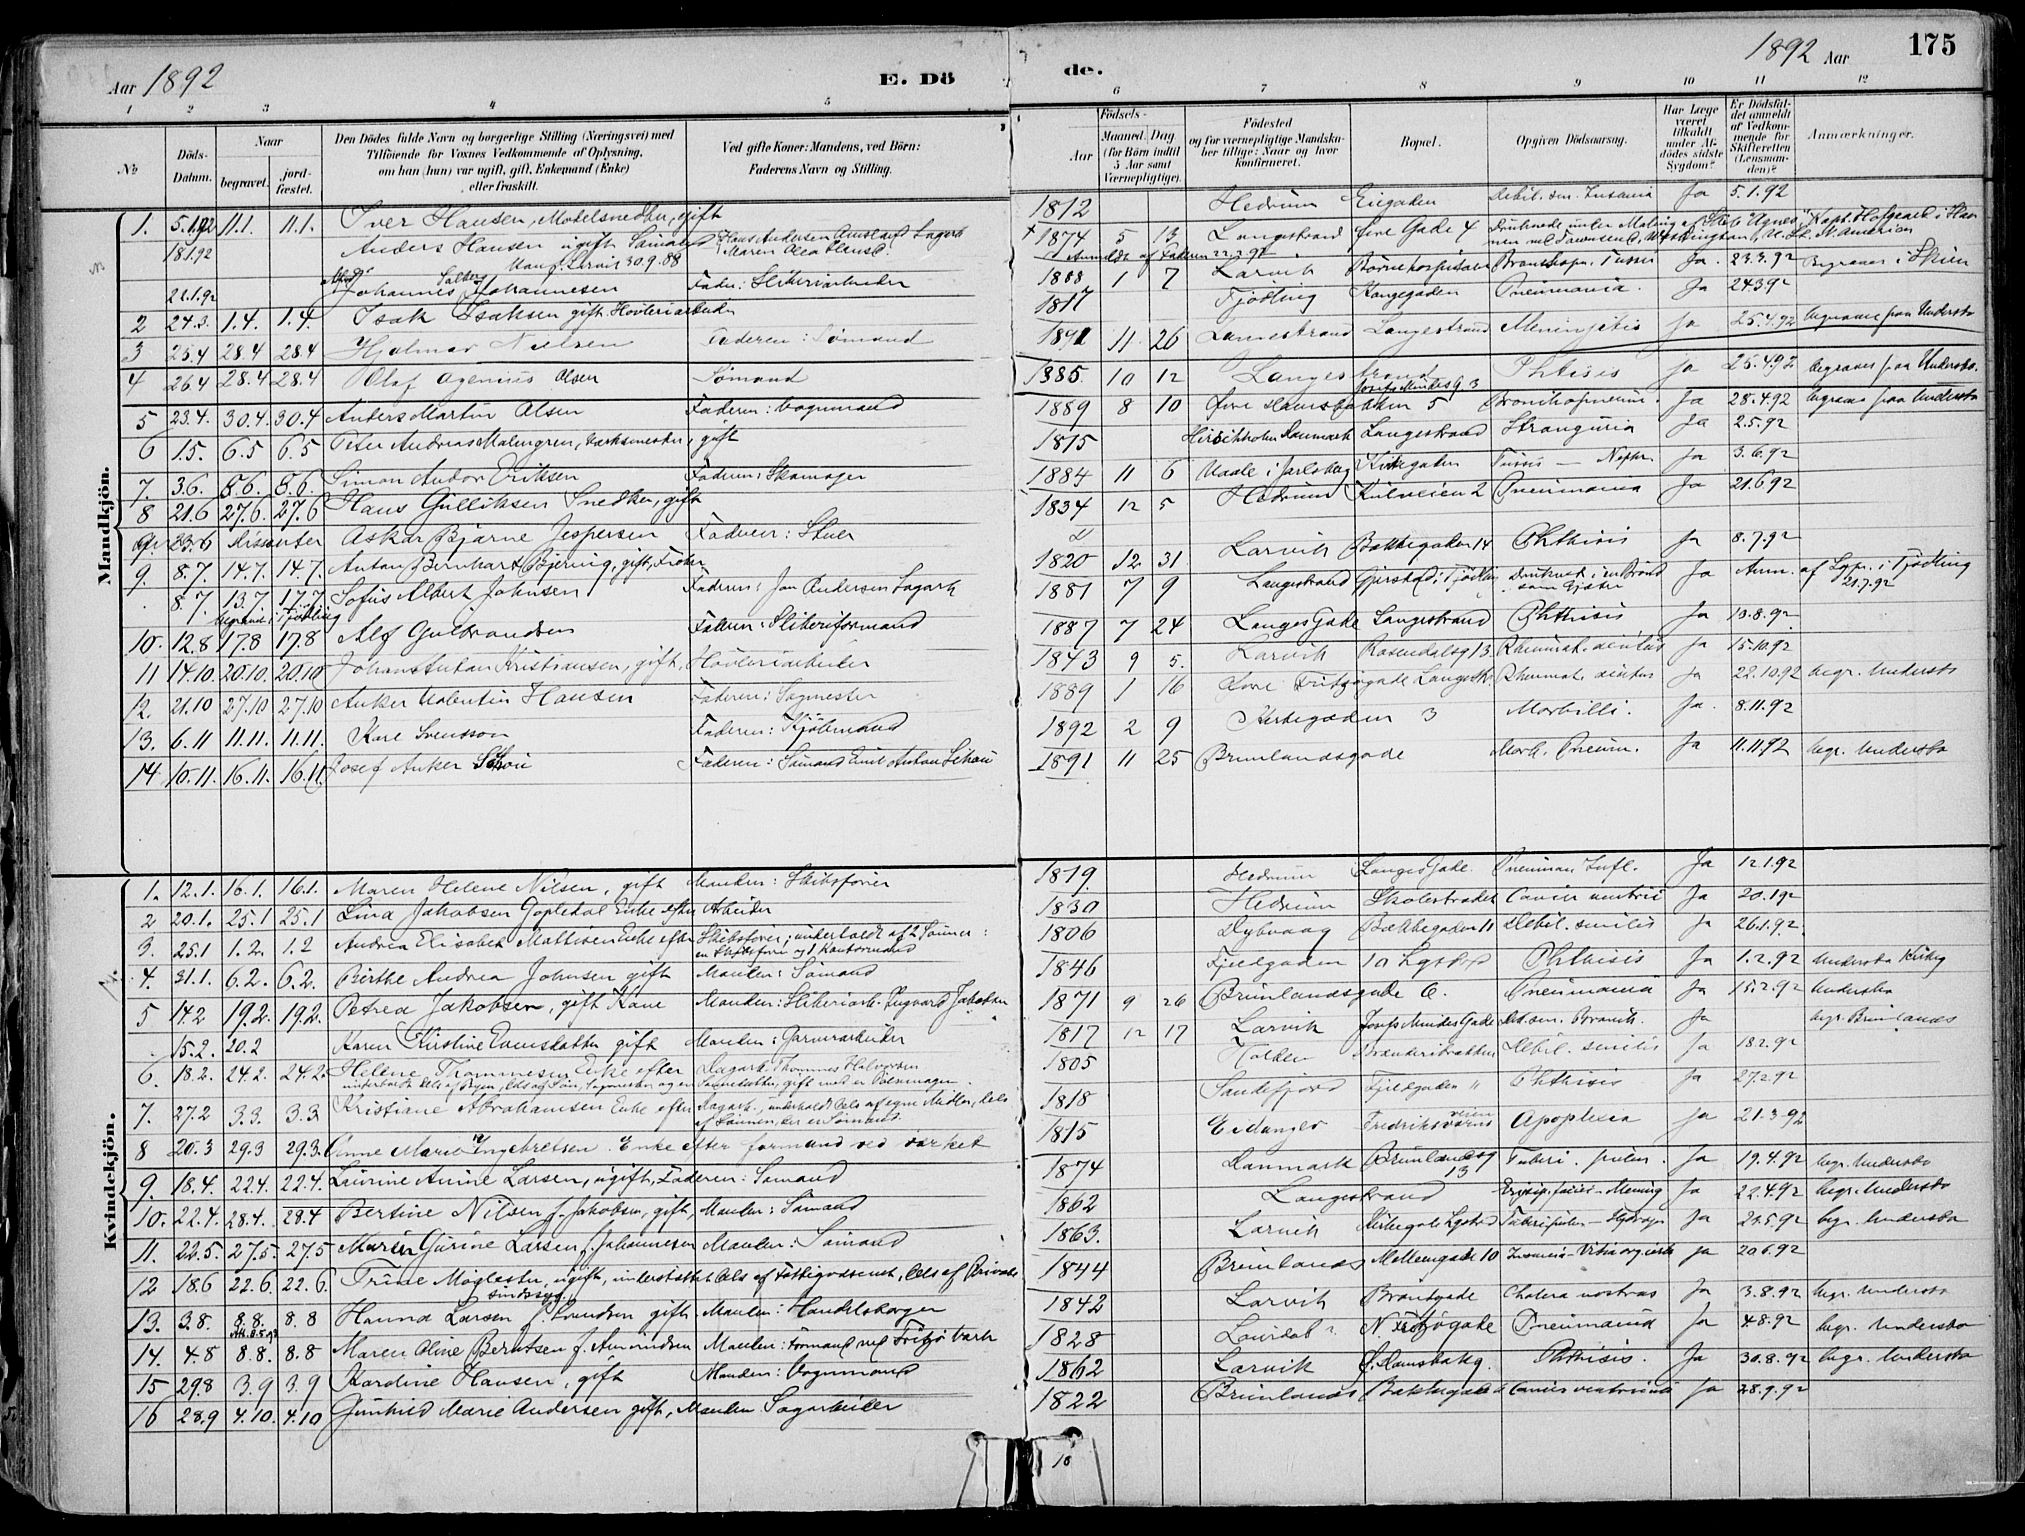 Aar 1892 E. Dö de. 1892 Aar 175
1 2 3 4 5 6 7 8 9 10 11 12
No Döds-Datum. Naar begravet. jordfæstet. Den Dödes fulde Navn og borgerlige Stilling (Næringsvei) med Tilföiende for Voxnes Vedkommende af Oplysning, om han (hun) var ugift, gift, Enkemand (Enke) eller fraskilt. Ved gifte Koner: Mandens, ved Börn: Faderens Navn og Stilling. Födsels- Aar Maaned. Dag (for Börn indtil 5 Aar samt Værnepligtige). Födested og for værnepligtige Mandskaber tillige: Naar og hvor konfirmeret. Bopæl. Opgiven Dödsaarsag. Har Læge været tilkaldt under Afdödes sidste Sygdom? Er Dödsfaldet anmeldt af Vedkommende for Skifteretten (Lensmanden)? Anmærkninger.
Mandkjön.
1. 5.1.92 11.1. 11.1. Iver Hansen, Modelsnedker, gift 1812 Hedrum Eiegaden Debil. sen. Insania Ja 5.1.92
18.1.92 Anders Hansen ugift Sömand Hans Andersen Lagarb. Maren Olea 1874 5 13 Langestrand Övre Gade 4 Druknede under
Larvik 30.9.88 Anmeldt af Faderen 22.2.92
22.1.92 Johannes Johannesen Fader: Sliberiarbeider 1888 1 7 Larvik Börnehospitalet Tussis Ja 23.3.92 Begraves i Skien
2 24.3. 1.4. 1.4. Isak Isaksen gift Hövleriarbeider 1817 Tjödling Kongegaden Pneumonia. Ja 24.3.92
3 25.4 28.4 28.4 Hjalmar Nielsen Faderen: Sömand 1891 11 26 Langestrand Langestrand Meningitis Ja 25.4.92 begraves paa Undersbo
4 26.4 28.4 28.4 Olaf Agenius Olsen Sömand 1885 10 12 Langestrand Phtisis Ja 26.4.92 begraves paa Undersbo.
5 23.4. 30.4. 30.4 Anders Martin Olsen Faderen: Vognmand 1889 8 10 Övre Damsbakken 5 Bronchopneum. Ja 28.4.92 begraves paa Undersbo
6 1.5. 6.5 6.5 Peter Andreas Malmgren, Værksmester, gift 1815 Danmark Langestrand Stranguria Ja 2.5.92
7. 3.6. 8.6. 8.6. Simon Andor Eriksen Faderen: Skomager 1884 11 6 Vaale i Jarlsberg Kirkegaden Tussis — Nephr. Ja 3.6.92
8 21.6 27.6. 27.6 Hans Gulliksen Snedker, gift 1834 12 5 Hedrum Kilveien 2 Pneumonia Ja 21.6.92
23.6 Dissenter Askar Bjarne Jespersen Faderen: Stuer
9. 8.7. 14.7. 14.7. Anton Bernhard Bjering, gift, Fisker 1820 12 31 Larvik Bækkegaden 14 Phthisis Ja 8.7.92
8.7. 13.7 17.7 Sofus Albert Johnsen Faderen: Jon Andersen Lagarb. 1881 7 9 Langestrand Gjerstad i Tjödling Druknet i en Brönd som Gjæter Ja Anm. af Lgpr. i Tjödling 21.7.92
begravet i Tjödling
10. 12.8 17.8 17.8 Alf Gulbrandsen Faderen: Sliberiformand 1887 7 24 Langes Gade Langestrand Phthisis Ja 13.8.92
11 14.10 20.10. 20.10 Johan Anton Kristiansen, gift, Hövleriarbeider 1843 9 5. Larvik Rosendalsg 13. Rheumat. acutus Ja 15.10.92
12. 21.10 27.10 27.10 Anker Valentin Hansen Faderen: Sagmester 1889 1 16 Övre Fritzögade Langestr. Rheumat. acutus Ja 22.10.92 begr. Undersbo
13. 6.11 11.11. 11.11. Kare Svensson Faderen: Kjöbmand 1892 2 9 Kirkegaden 3 Morbilli. Ja. 8.11.92
14 10.11. 16.11. 16.11. Josef Anker Schou Faderen: Sömand Emil Anton Schou 1891 11 25 Brunlandsgade Morb. Pneum. Ja 11.11.92 begr. Undersbo
Kvindekjön.
1. 12.1. 16.1. 16.1. Maren Helene Nilsen, gift Manden: Skibsförer 1819. Hedrum Langes Gade. Pneumon. Infl. Ja 12.1.92
2 20.1. 25.1 25.1 Lina Jakobsen Gopledal Enke efter Arbeider 1830 Hedrum Skolestrædet Cancer ventric Ja 20.1.92
3. 25.1 1.2. 1.2 Andrea Elisabet Mattisen Enke efter Skibsförer; underholdt af 2 Sönner: en Skibsförer og 1 Kontormand 1806 Dybvaag Bækkegaden 11 Debil. senilis Ja 26.1.92.
4. 31.1. 6.2. 6.2. Birthe Andrea Johnsen gift Manden: Sömand 1846 Fjeldgaden 10 Lgstrd Phthisis Ja 1.2.92 Undersbo Kirkeg
5 14.2 19.2. 19.2. Petrea Jakobsen, gift Kone Manden: Sliberiarb. Ingvard Jakobsen 1871 9 26 Brunlandsgade 6. Pneumonia Ja 15.2.92 Undersbo
15.2. 20.2 Karen Kirstine Evensdatter gift Manden: Garverarbeider 1817 12 17 Larvik Josefs Mindes Gade Deb. sen. Bronch. Ja begr. Brunlanes
6. 18.2. 24.2. 24.2. Helene Thommesen Enke efter Dagarb. Thommes Halvorsen 1805 Holden Brænderibakken Debil. senilis Ja 18.2.92
underholdt dels af Byen, dels af Sön, Sagmester og en Sönnedatter, gift med en Pölsemager.
7. 27.2 3.3. 3.3 Kristiane Abrahamsen Enke efter Dagarb., underholdt dels af egne Midler, dels af Sönnen, der er Sömand 1818 Sandefjord Fjeldgaden 11 Phthisis Ja 27.2.92
8 20.3 29.3 29.3. Anne Marie Ingebretsen Enke efter formand ved værket 1815 Eidanger Fredriksværns veien Apoplexia Ja 21.3.92
9. 18.4. 22.4. 22.4. Laurine Amine Larsen, ugift, Faderen: Sömand 1874 Danmark Brunlandsg 13 Tuberc. pulm. Ja 19.4.92 begr. Undersbo
10. 22.4. 28.4. 28.4 Bertine Nilsen f. Jakobsen, gift, Manden: Sömand 1862 Langestrand Erysip. faciei - Mening Ja 22.4.92 begr. Undersbo
11. 22.5. 27.5. 27.5 Maren Gurine Larsen f. Johannesen Manden: Sömand 1863. Larvik Kirkegade Lgstrd Ja 23.5.92 begr. Undersbo
12 18.6 22.6. 22.6. Trine Möglester, ugift, understöttet dels af Fattigvæsenet, dels af Private 1844 Brunlanes Mellemgade 10 Ja 20.6.92
sindssyg.
13. 3.8. 8.8. 8.8 Hanna Larsen f. Svendsen gift Manden: Handelsborger 1842 Larvik Brandgade Cholera nostras Ja 3.8.92 begr. Undersbo
14. 4.8 8.8. 8.8 Maren Oline Berntsen f. Amundsen Manden: Formand ved Fritzö Værk 1828 Laurdal? N. Fritzögade Pneumonia Ja 4.8.92 begr. Undersbo
15 29.8 3.9 3.9 Kardine Hansen, gift Manden: Vognmand 1862 Larvik Ö. Damsbakg. Phthisis. Ja 30.8.92 begr. Undersbo
16 28.9 4.10. 4.10 Gunhild Marie Andersen gift, Manden Sagarbeider 1822 Brunlanes Bækkegaden Cancer ventriculi Ja 28.9.92
10